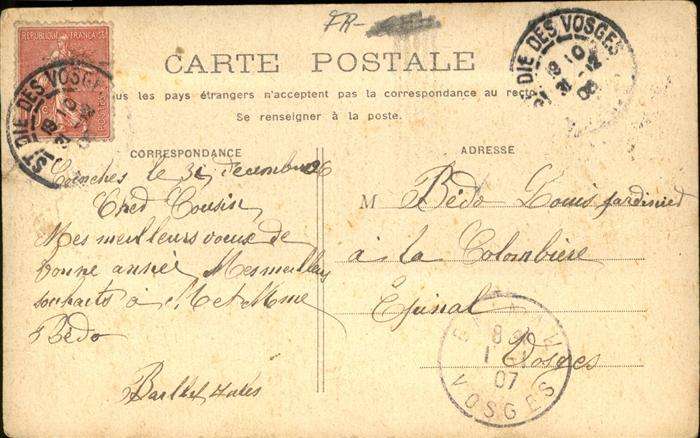 FR-
REPUBLIQUE FRANÇAISE
POSTES
ST DIE DES VOSGES
18 10
31 12
ST DIE DES VOSGES
18 10
31 -12
06
CARTE POSTALE
us les pays étrangers n'acceptent pas la correspondance au recto
Se renseigner à la poste.
CORRESPONDANCE
Coinches le 31 Decembre 06
Cher Cousin
Mes meilleurs voeux de
bonne année Mes meilleurs
souhaits à M et Mme
Bédo
ADRESSE
M Bédo Louis jardinier
à la Colombière
Epinal
Vosges
EPINAL
8
1 -1
07
VOSGES